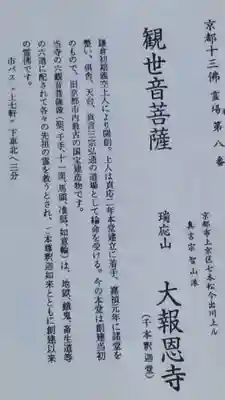 京都十三佛霊場第八番
観世音菩薩
京都市上京区七本松今出川上ル
真言宗智山派
瑞応山 大報恩寺
(千本釈迦堂)
鎌倉初期義空上人により開創。上人は貞応二年本堂建立に着手、嘉禎元年に諸堂を
整い、倶舎、天台、真言三宗弘通の道場として綸命を受ける。今の本堂は創建当初
のもので、旧京都市内最古の国宝建造物です。
当寺の六観音菩薩像(聖、千手、十一面、馬頭、准胝、如意輪)は、地獄、餓鬼、畜生道等
の六道に配されて各々の先祖の霊を救うとされ、ご本尊釈迦如来とともに創建以来
の霊佛です。
市バス「上七軒」下車北へ三分